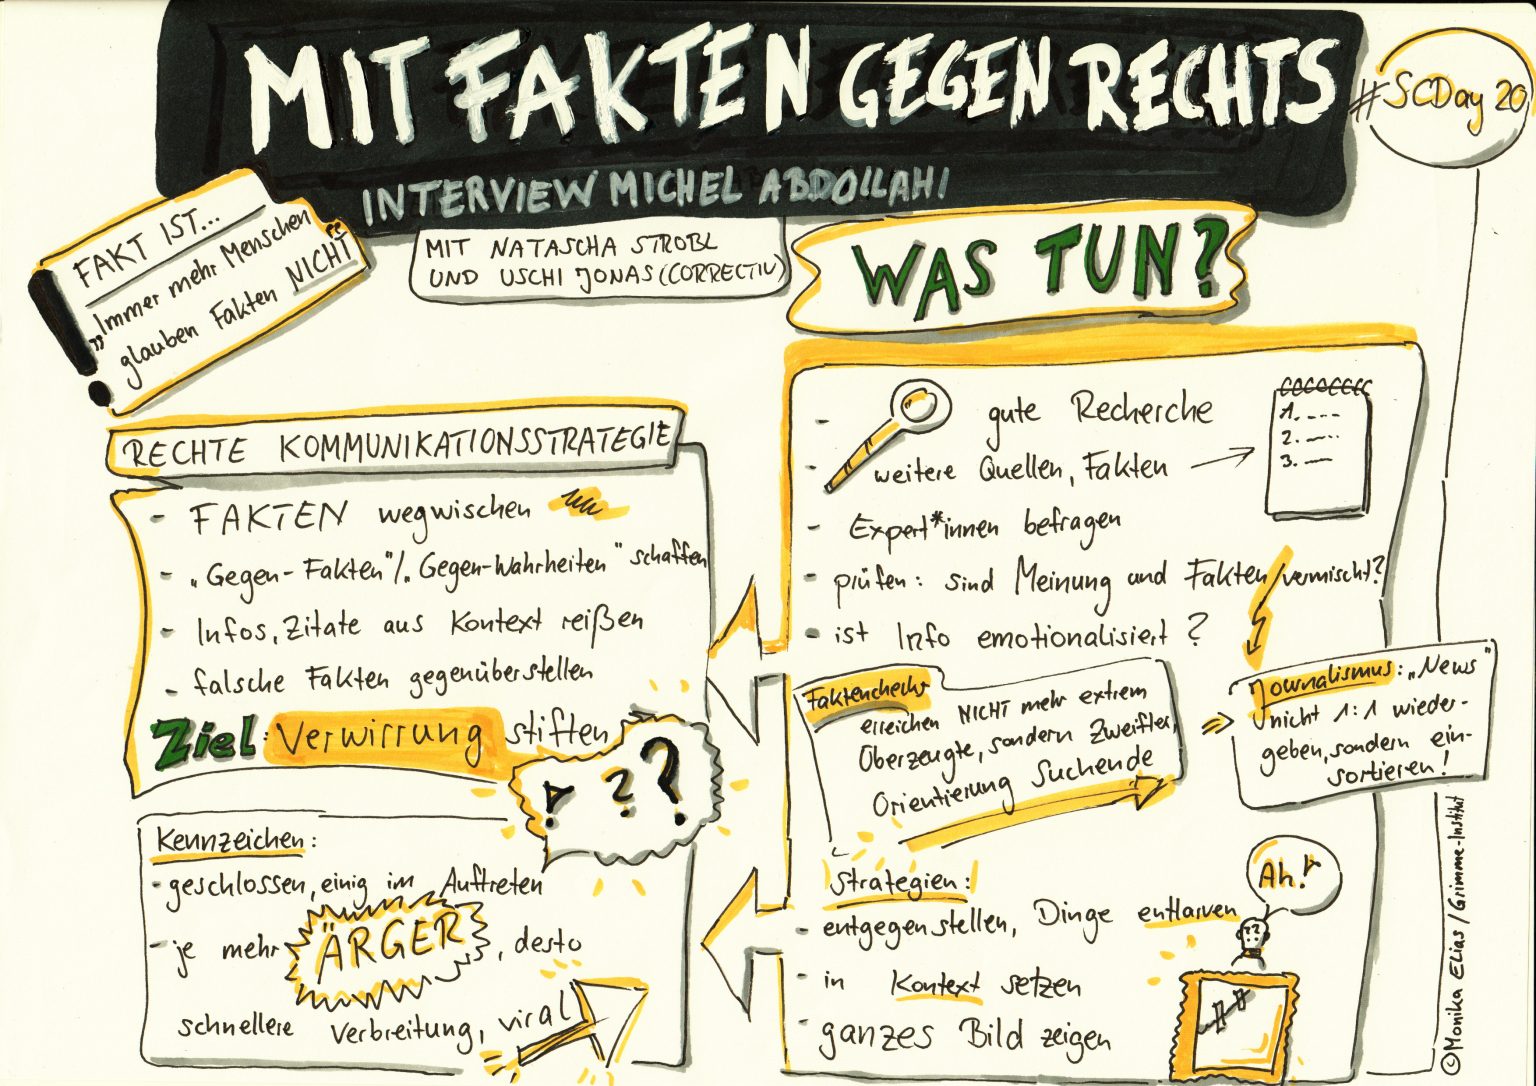 MIT FAKTEN GEGEN RECHTS
#SCDay 20
INTERVIEW MICHEL ABDOLLAHI
MIT NATASCHA STROBL
UND USCHI JONAS (CORRECTIV)
FAKT IST...
"Immer mehr Menschen
glauben Fakten NICHT"
RECHTE KOMMUNIKATIONSSTRATEGIE
- FAKTEN wegwischen
- "Gegen-Fakten"/"Gegen-Wahrheiten" schaffen
- Infos, Zitate aus Kontext reißen
- falsche Fakten gegenüberstellen
Ziel: Verwirrung stiften
! ? ?
Kennzeichen:
- geschlossen, einig im Auftreten
- je mehr ÄRGER, desto
schnellere Verbreitung, viral
WAS TUN?
- gute Recherche
- weitere Quellen, Fakten
1. ----
2. ----
3. --
- Expert*innen befragen
- prüfen: sind Meinung und Fakten vermischt?
- ist Info emotionalisiert?
Faktenchecks
erreichen NICHT mehr extrem
Überzeugte, sondern Zweifler,
Orientierung Suchende
Journalismus: "News"
nicht 1:1 wieder-
geben, sondern ein-
sortieren!
Strategien:
- entgegenstellen, Dinge entlarven
- in Kontext setzen
- ganzes Bild zeigen
Ah!
©Monika Elias/Grimme-Institut